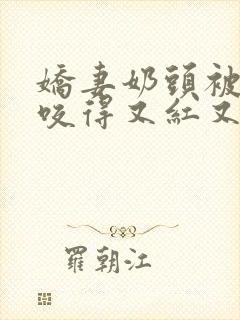 嬌妻奶頭被
咬得又紅又
羅朝江